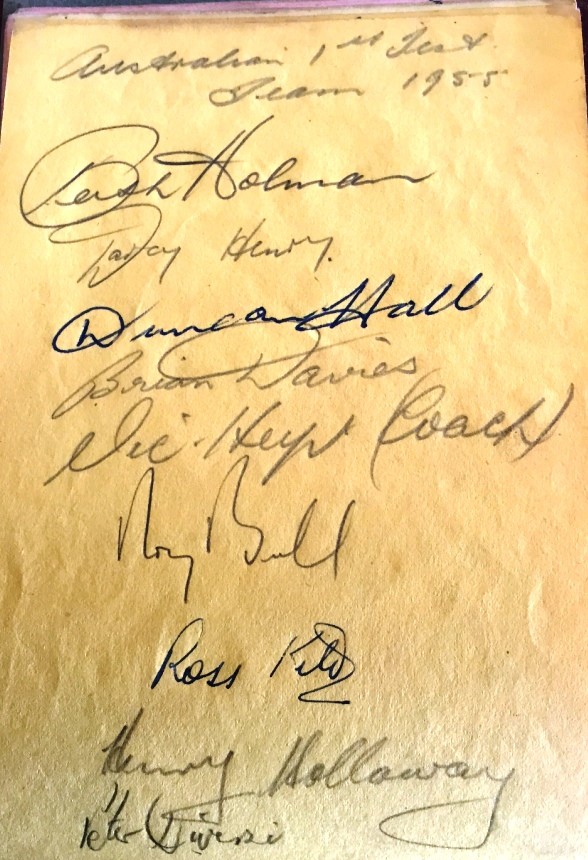 Australian 1st Test
Team 1955
Keith Holman
Darcy Henry.
Duncan Hall
Brian Davies
Vic. Hey Coach
Roy Bull
Ross Kite
Henry Holloway
Peter Diversi